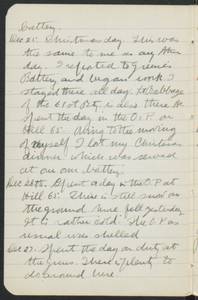 Battery.
Dec 25. Christmas day. This was
the same to me as any other
day. I reported to guns
Battery and began work. I
stayed there all day. Lt. Babbage
of the 61st Bty is also there. He
spent the day in the O.P. on
Hill 65. Owing to the moving
of myself I lost my Christmas
dinner which was served
at our own battery.
Dec 26th. Spent a day in the O.P. at
Hill 65. There is still snow on
the ground. Wire fell yesterday.
It is rather cold. The O.P. as
usual was shelled.
Dec 27. Spent the day on duty at
the guns. There is plenty to
do around here.